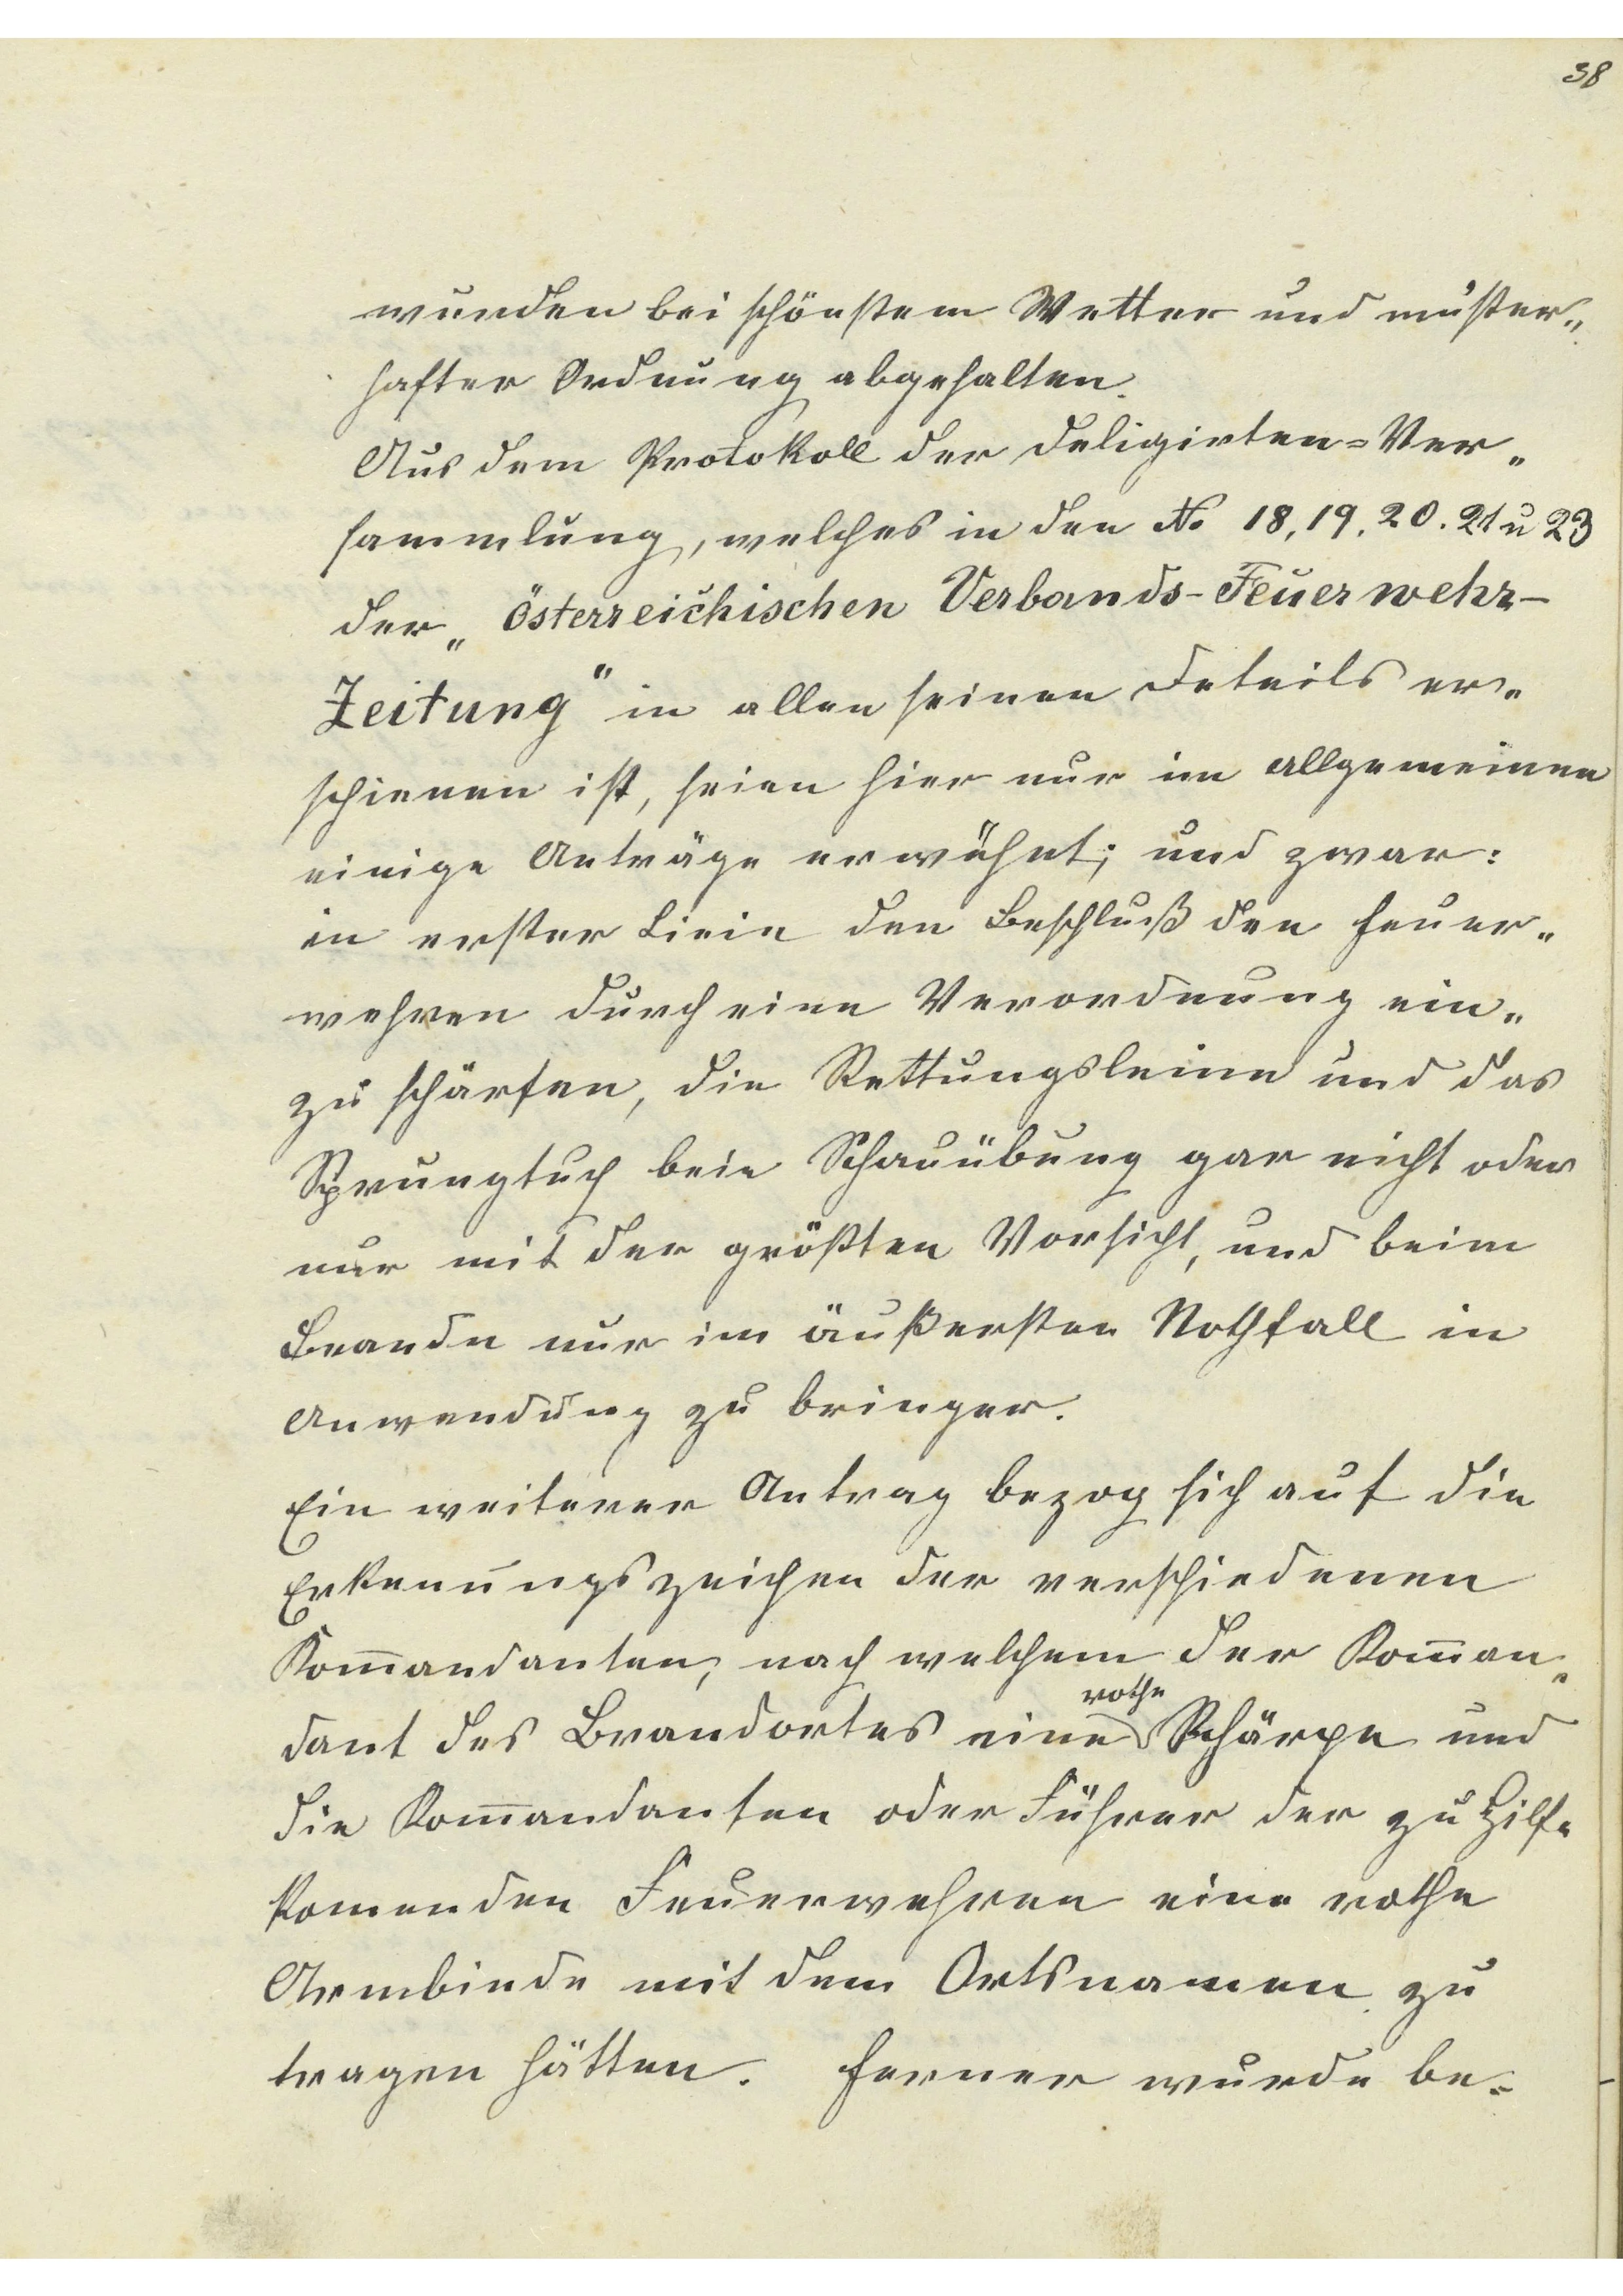 38
wurden bei schönstem Wetter und muster„
hafter Ordnung abgehalten.
Aus dem Protokoll der Deligirten=Ver„
sammlung, welches in den No 18, 19, 20. 21 u 23
der „Österreichischen Verbands-Feuerwehr-
Zeitung" in allen seinen Details er„
schienen ist, seien hier nur im Allgemeinen
einige Anträge erwähnt; und zwar:
in erster Linie den Beschluß den Feuer„
wehren durch eine Verordnung ein„
zu schärfen, die Rettungsleine und das
Sprungtuch beie Schauübung gar nicht oder
nur mit der größten Vorsicht, und beim
Brande nur im äußersten Nothfall in
Anwendung zu bringen.
Ein weiterer Antrag bezog sich auf die
Erkenungszeichen der verschiedenen
Kom̅andanten, nach welchem der Kom̅an„
dant des Brandortes eine rothe Schärpe und
die Kom̅andanten oder Führer der zu Hilfe
komenden Feuerwehren eine rothe
Armbinde mit dem Ortsnamen zu
tragen hätten. Ferner wurde be=